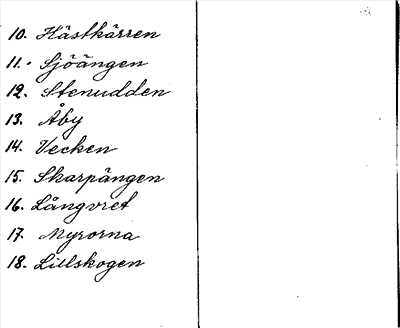 10. Hästkärren
11. Sjöängen
12. Stenudden
13. Åby
14. Vecken
15. Skarpängen
16. Långvret
17. Myrorna
18. Lillskogen